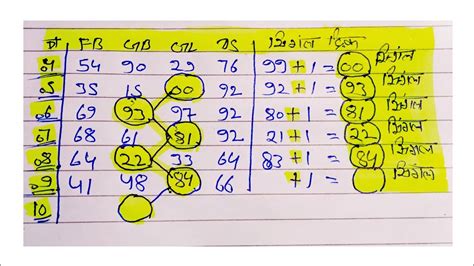 ता FB GB GL DS सिंगल ट्रिक
04 54 90 29 76 99 + 1 = 00 सिंगल
05 35 15 00 92 92 + 1 = 93 सिंगल
06 69 93 97 92 80 + 1 = 81 सिंगल
07 68 61 81 92 21 + 1 = 22 सिंगल
08 64 22 33 64 83 + 1 = 84 सिंगल
09 41 48 84 66 + 1 = सिंगल
10